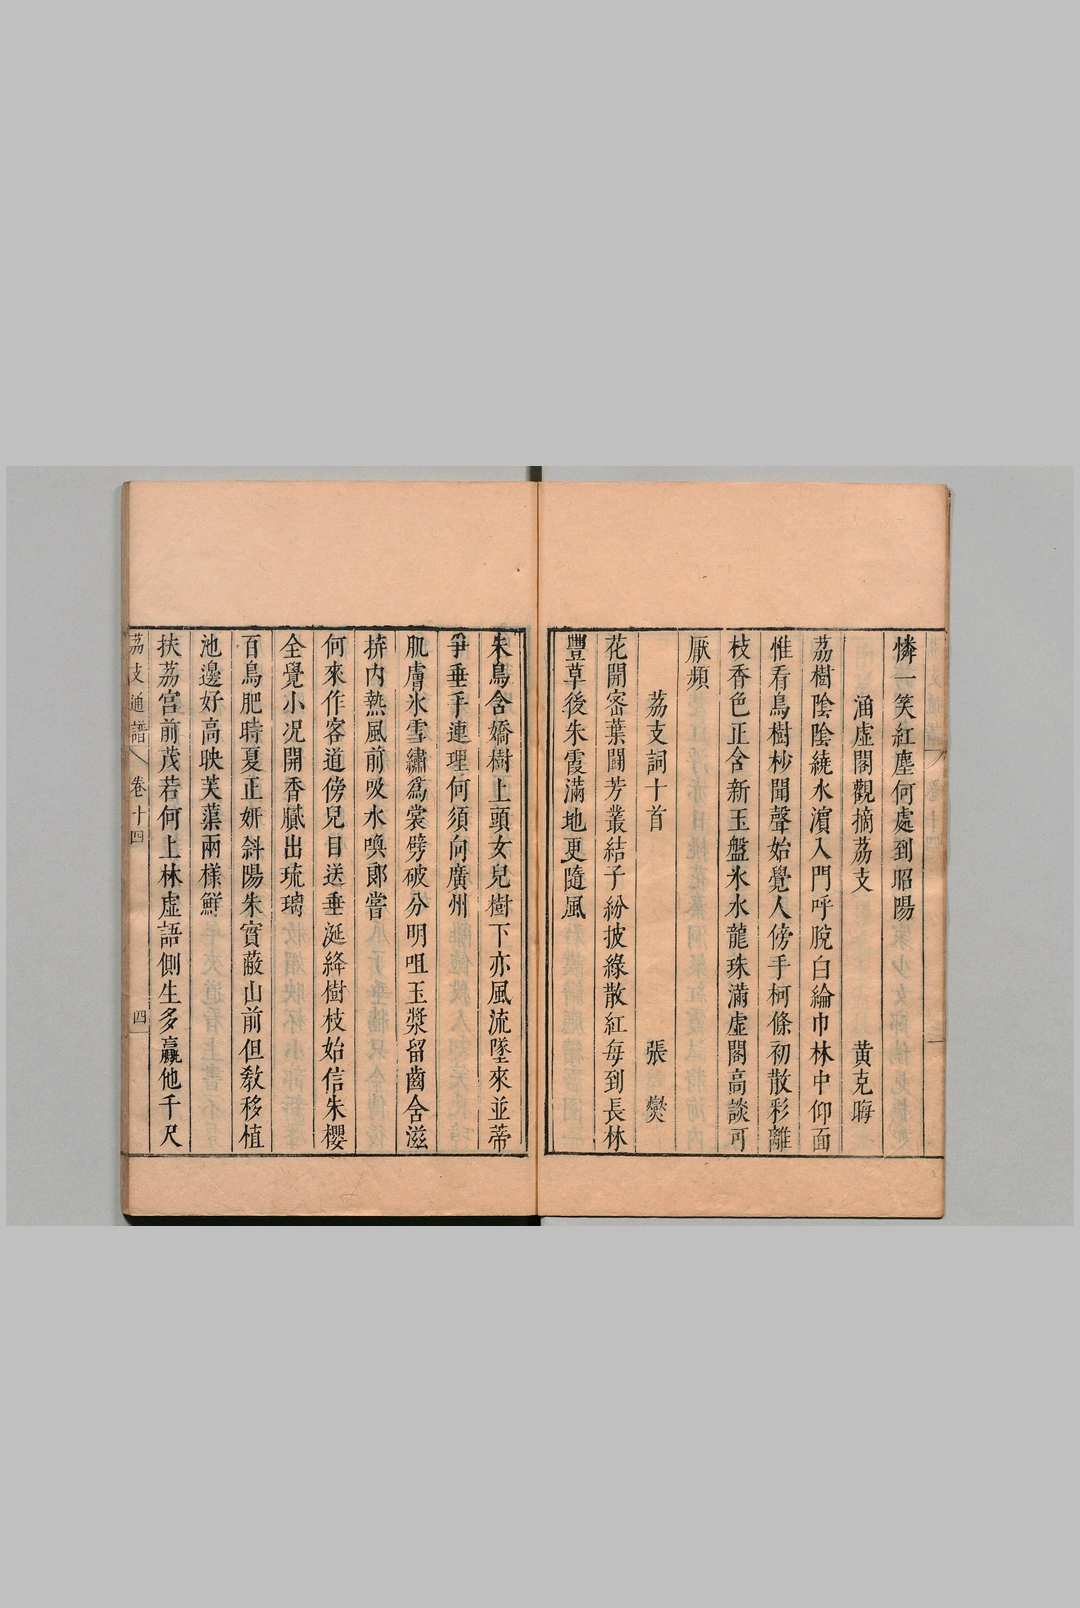 憐一笑紅塵何處到昭陽
涵虛閣觀摘荔支　黃克晦
荔樹陰陰繞水濵入門呼脫白綸巾林中仰面
惟看鳥樹杪聞聲始覺人傍手柯條初散彩離
枝香色正含新玉盤氷水龍珠滿虛閣高談可
厭頻
荔支詞十首　張燮
花開密葉鬪芳叢結子紛披緑散紅每到長林
豐草後朱霞滿地更隨風
朱鳥含嬌樹上頭女兒樹下亦風流墜來並蒂
爭垂手連理何須向廣州
肌膚氷雪繡爲裳劈破分明咀玉漿留齒含滋
拚内熱風前吸水喚郎嘗
何來作客道傍兒目送垂涎絳樹枝始信朱櫻
全覺小况開香膩出琉璃
百鳥肥時夏正妍斜陽朱實蔽山前但敎移植
池邊好高映芙蕖兩樣鮮
扶荔宮前茂若何上林虛語側生多贏他千尺
荔支通譜　卷十四　四